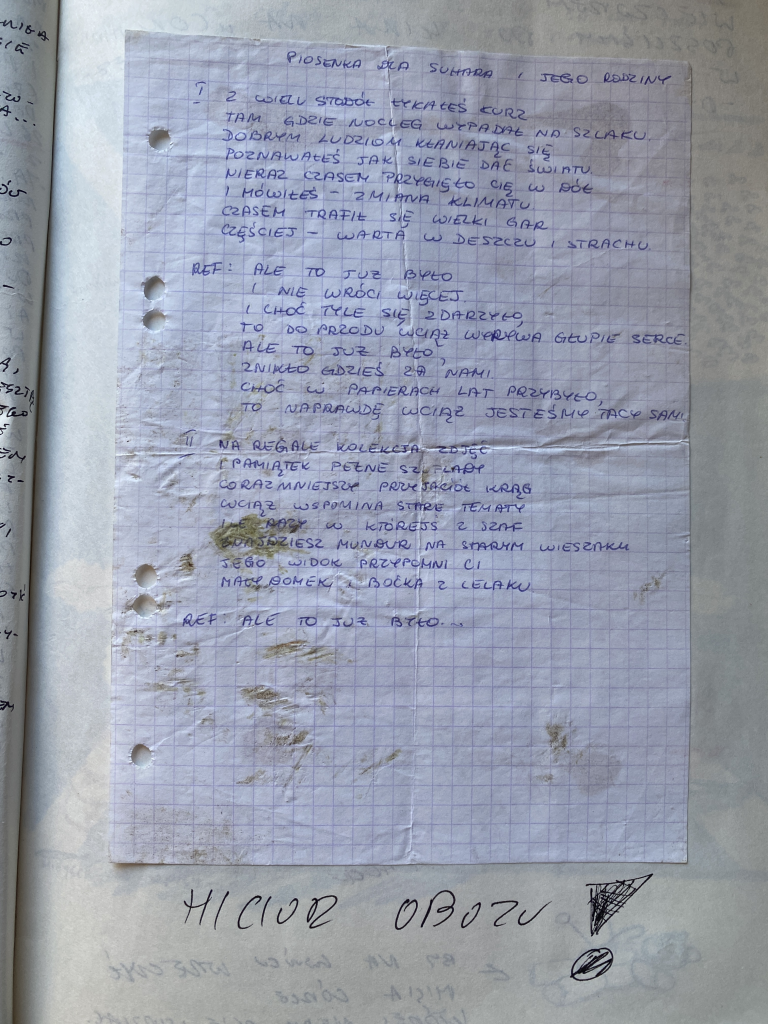 PIOSENKA DLA SUHARA I JEGO RODZINY
I Z WIELU STODÓŁ ŁYKAŁEŚ KURZ
TAM GDZIE NOCLEG WYPADAŁ NA SZLAKU.
DOBRYM LUDZIOM KŁANIAJĄC SIĘ
POZNAWAŁEŚ JAK SIEBIE DAĆ ŚWIATU.
NIERAZ CZASEM PRZYGIĘŁO CIĘ W DÓŁ
I MÓWIŁEŚ – ZMIANA KLIMATU
CZASEM TRAFIŁ SIĘ WIELKI GAR
CZĘŚCIEJ – WARTA W DESZCZU I STRACHU.
REF: ALE TO JUŻ BYŁO
I NIE WRÓCI WIĘCEJ.
I CHOĆ TYLE SIĘ ZDARZYŁO,
TO DO PRZODU WCIĄŻ WYRYWA GŁUPIE SERCE.
ALE TO JUŻ BYŁO,
ZNIKŁO GDZIEŚ ZA NAMI
CHOĆ W PAPIERACH LAT PRZYBYŁO,
TO NAPRAWDĘ WCIĄŻ JESTEŚMY TACY SAMI
II NA REGALE KOLEKCJA ZDJĘĆ
I PAMIĄTEK PEŁNE SZUFLADY
CORAZ MNIEJSZY PRZYJACIÓŁ KRĄG
WCIĄŻ WSPOMINA STARE TEMATY
ILE RAZY W KTÓREJŚ Z SZAF
ZNAJDZIESZ MUNDUR NA STARYM WIESZAKU
JEGO WIDOK PRZYPOMNI CI
MAŁY DOMEK I BOĆKA Z LELAKU
REF: ALE TO JUŻ BYŁO...
HICIOR OBOZU !